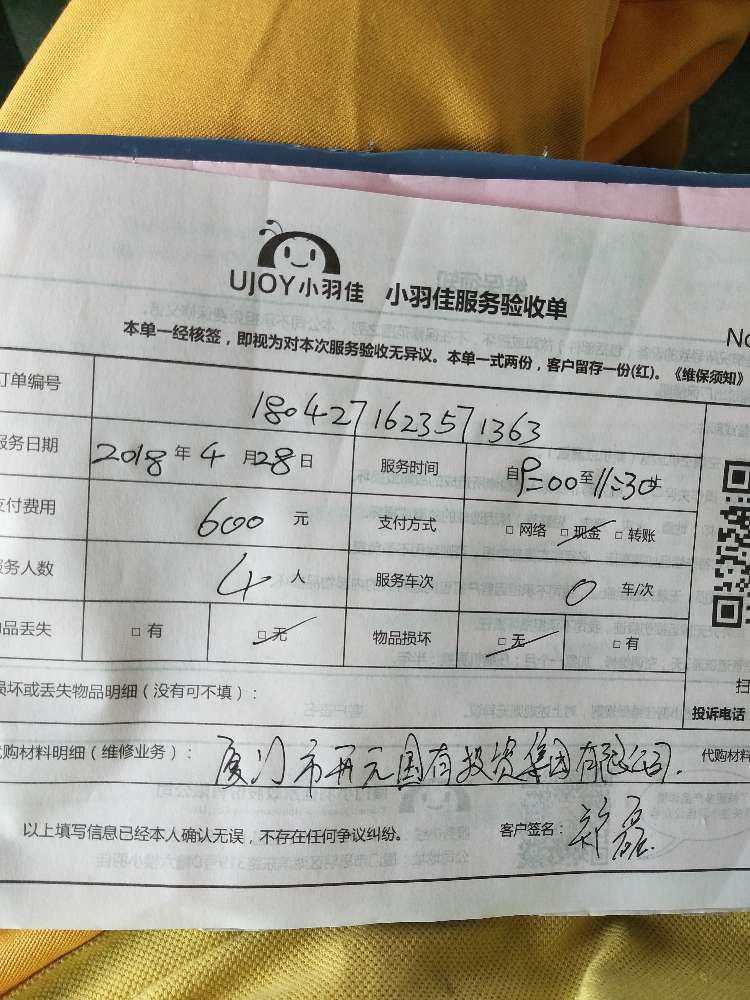 UJOY小羽佳 小羽佳服务验收单
No
本单一经核签，即视为对本次服务验收无异议。本单一式两份，客户留存一份(红)。《维保须知》
订单编号 1804271623571363
服务日期 2018年4月28日 服务时间 自9:00至11:30止
支付费用 600元 支付方式 □网络 □现金 □转账
服务人数 4人 服务车次 0车/次
物品丢失 □有 □无 物品损坏 □无 □有
损坏或丢失物品明细（没有可不填）：
扫
投诉电话
代购材料明细（维修业务）： 厦门市开元国有投资集团有限公司. 代购材料
以上填写信息已经本人确认无误，不存在任何争议纠纷。 客户签名：